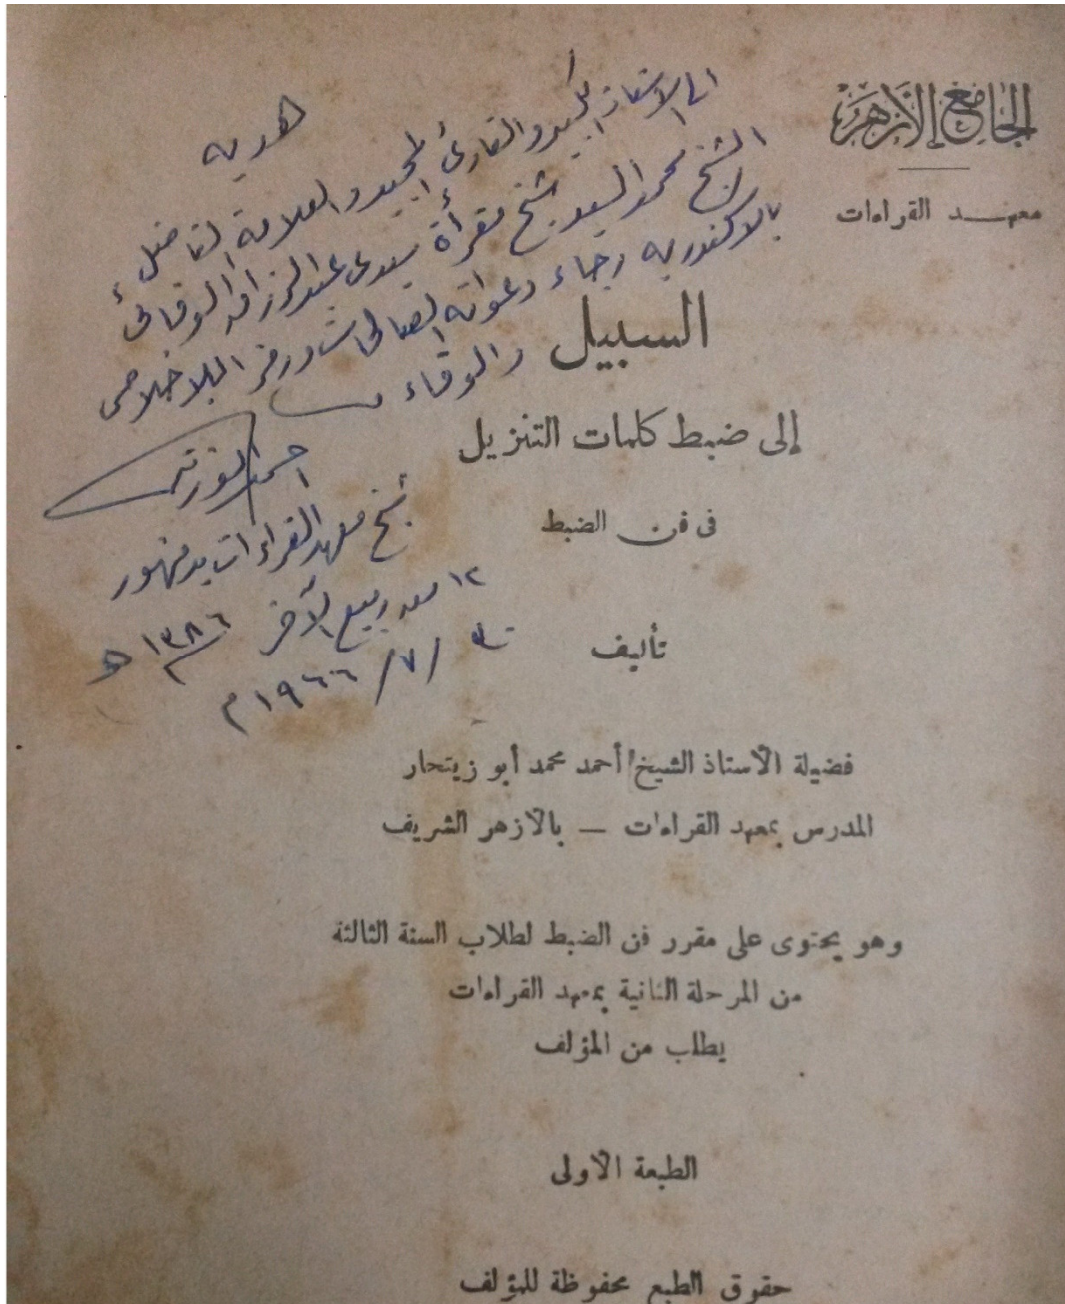 الجامع الأزهر
معهد القراءات
هدية
إلى الأستاذ الكبير والقارئ المجيد والعلامة الفاضل
الشيخ محمد السيد شيخ مقرأة سيدى عبد الرزاق الوفائى
بالاسكندرية رجاء دعواته الصالحات ورمز الإخلاص
والوفاء
شيخ معهد القراءات بدمنهور
١٢ من ربيع الآخر ١٣٨٦ هـ
٣٠ / ٧ / ١٩٦٦ م
السبيل
إلى ضبط كلمات التنزيل
فى فن الضبط
تأليف
فضيلة الأستاذ الشيخ/أحمد محمد أبو زيتحار
المدرس بمعهد القراءات — بالأزهر الشريف
وهو يحتوى على مقرر فن الضبط لطلاب السنة الثالثة
من المرحلة الثانية بمعهد القراءات
يطلب من المؤلف
الطبعة الأولى
حقوق الطبع محفوظة للمؤلف